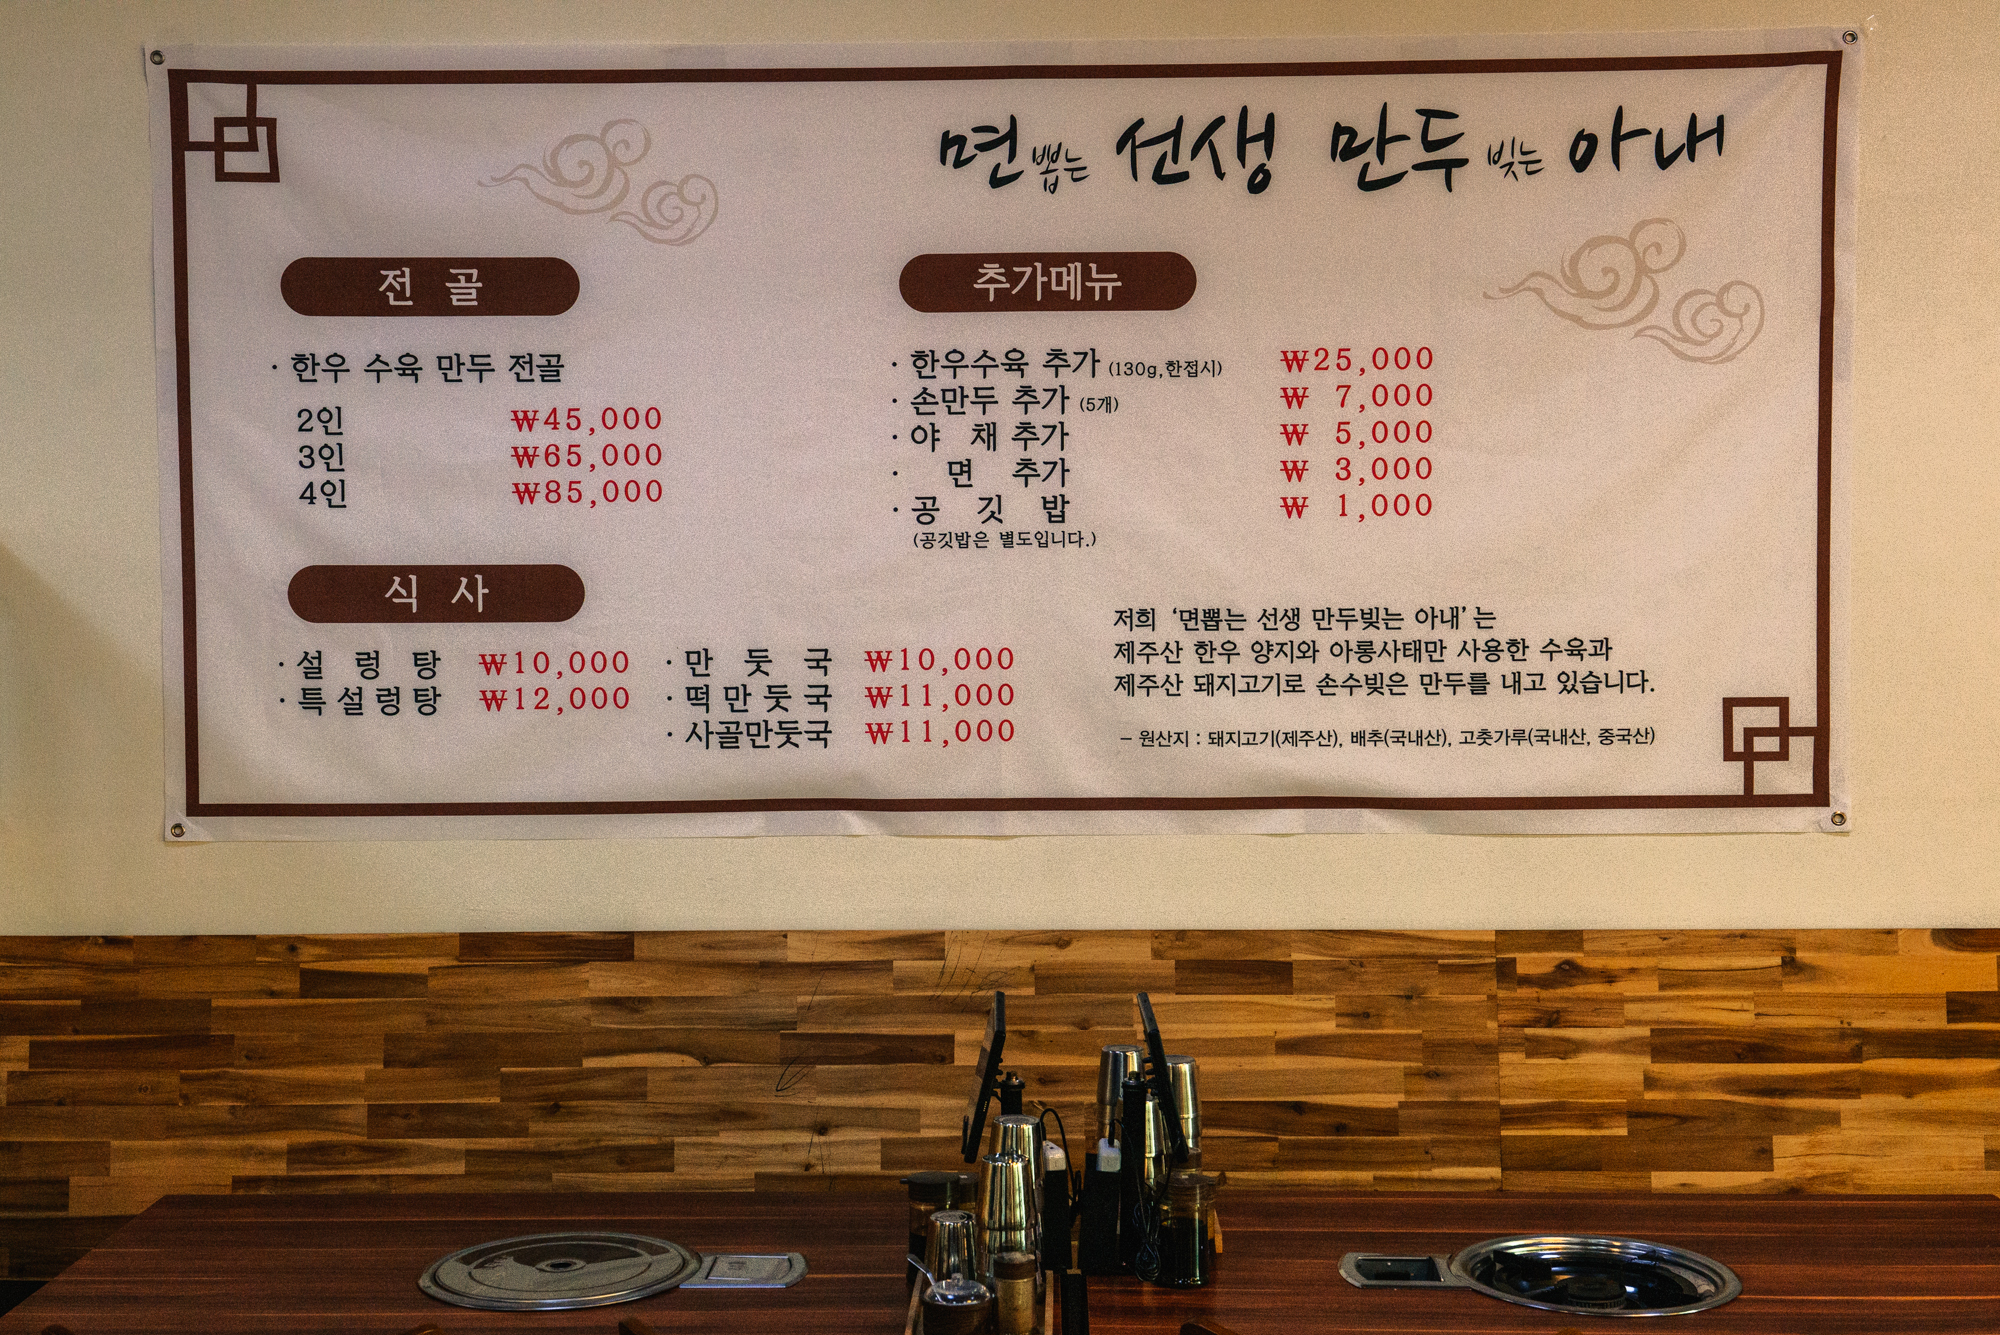 면 뽑는 선생 만두 빚는 아내
전 골
· 한우 수육 만두 전골
2인 ₩45,000
3인 ₩65,000
4인 ₩85,000
추가메뉴
· 한우수육 추가 (130g,한접시) ₩25,000
· 손만두 추가 (5개) ₩ 7,000
· 야 채 추가 ₩ 5,000
· 면 추가 ₩ 3,000
· 공 깃 밥 ₩ 1,000
(공깃밥은 별도입니다.)
식 사
· 설 렁 탕 ₩10,000
· 특설렁탕 ₩12,000
· 만 둣 국 ₩10,000
· 떡만둣국 ₩11,000
· 사골만둣국 ₩11,000
저희 '면뽑는 선생 만두빚는 아내'는
제주산 한우 양지와 아롱사태만 사용한 수육과
제주산 돼지고기로 손수빚은 만두를 내고 있습니다.
- 원산지 : 돼지고기(제주산), 배추(국내산), 고춧가루(국내산, 중국산)